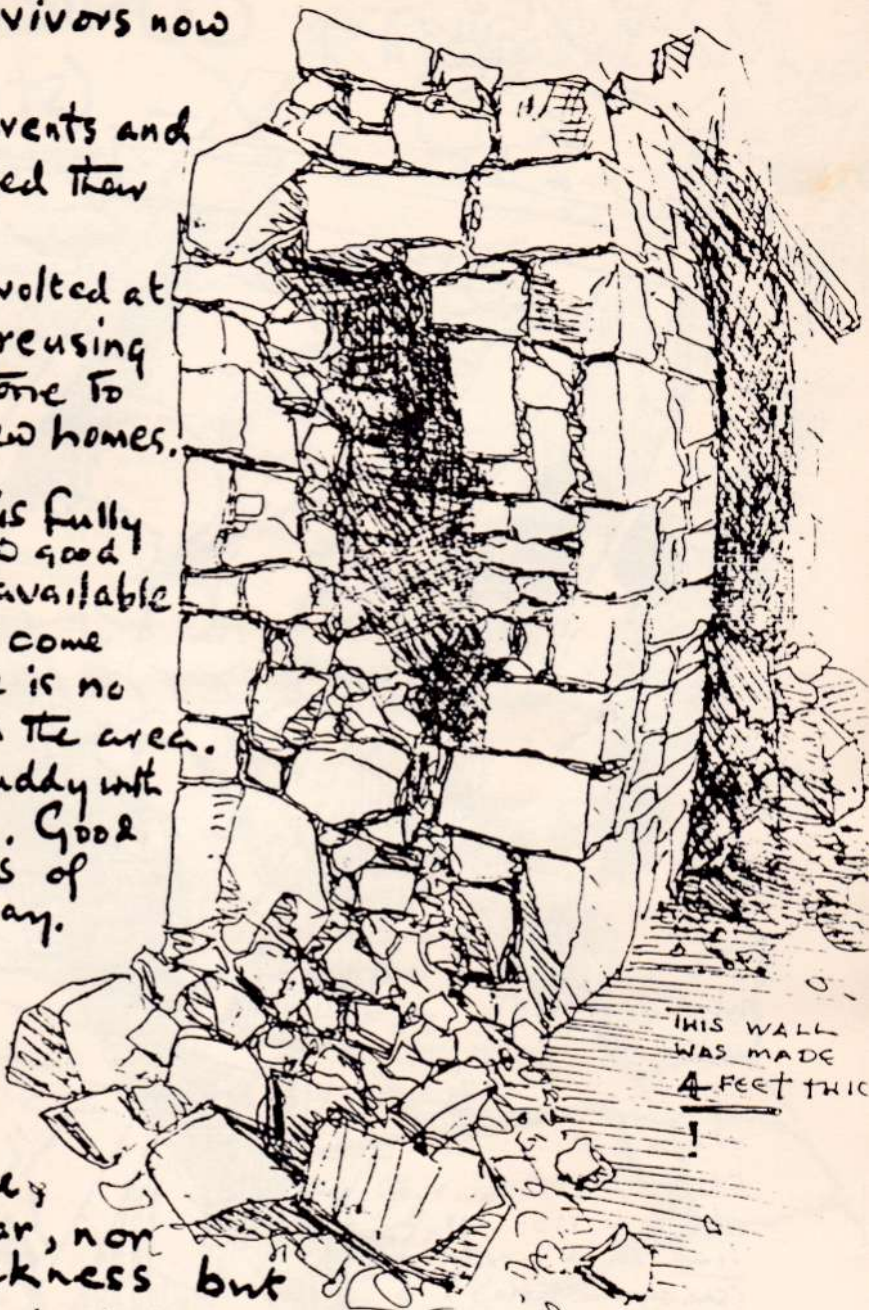 vivors now
vents and
ed their
volted at
reusing
tone to
ew homes.
is fully
o good
available
come
e is no
n the area.
uddy with
. Good
s of
ay.
THIS WALL
WAS MADE
4 FEET THIC
!
e,
ar, nor
ckness but